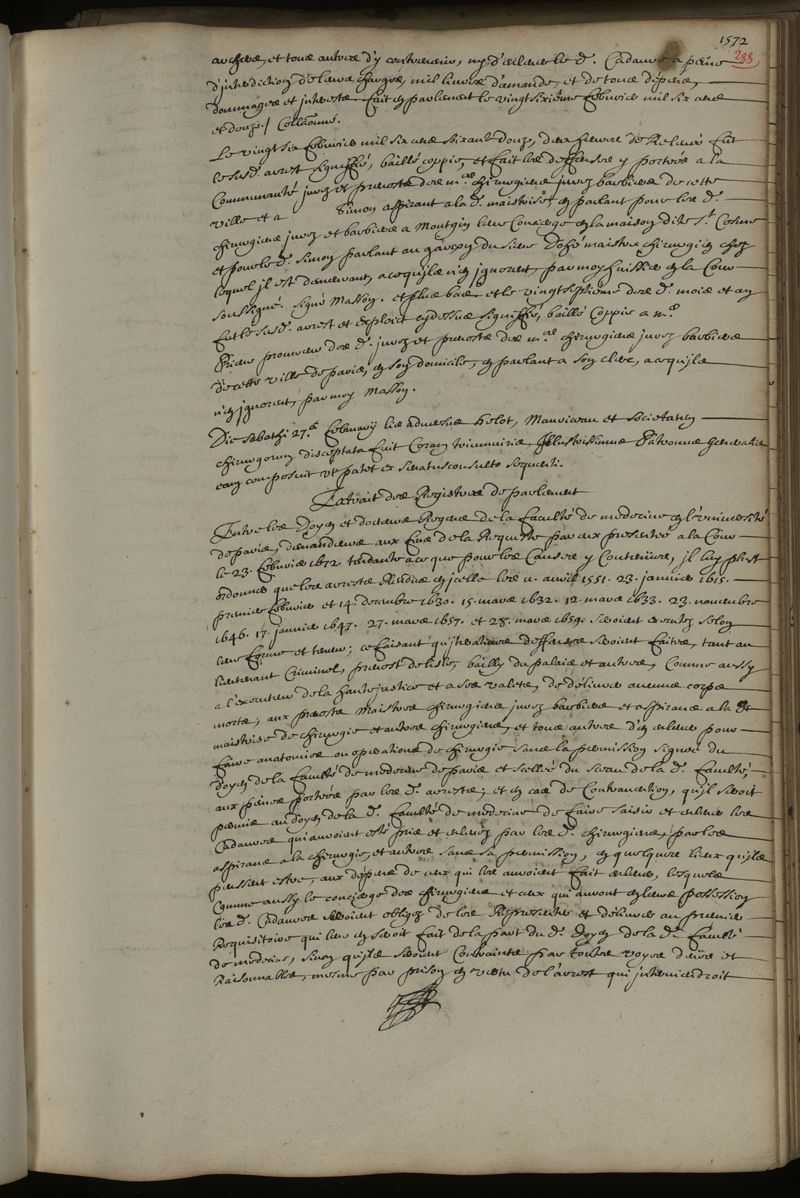 1572
288
archers, et tous autres d'y contrevenir, ny d'enlever led. Cadavre a peine
d'interdiction de leurs charges, mil livres d'amande, et de tous dépens,
dommages et interests. Fait en parlement le vingt sixiéme febvrier mil six cens
et douze.
Le vingt six febvrier mil six cens soixante douze, deux heures de relevée fut
le susd. arrest signiffié, baillé coppie, et fait les deffenses y portées a la
Communauté jurez et prevosts des m.es chirurgiens jurez barbiers de cette
ville et a Simon aspirant a la d. maistrise, en parlant pour les d.
chirurgiens jurez et barbiers a Montgin leur Concierge en la maison dite S.t Cosme
et pour le d. Simon parlant au garçon du sieur maistre chirurgien chez
lequel il est demeurant, a ce qu'ils n'en ignorent, par moy huissier en la Cour
soussigné. Signé Masson. et plus bas, et le vingt septiéme des d. mois et an
fut le susd. arrest et exploit cy dessus signiffié, baillé Coppie a m.e
procureur des d. jurez et prevosts des m.es chirurgiens jurez barbiers
de cette ville de paris, en son domicile, en parlant a son clerc, a ce qu'ils
n'en ignorent, par moy Masson.
Die Sabathi 27.a februarij lis adversus Holot, Mauriceau et societatem
chirurgorum disceptata fuit Coram triumviris, Illustrissimus Patronus Generalis
eam composuit ut patet ex senatusconsulto sequenti.
Extrait des Registres de parlement
Entre les Doyen et docteurs Regens de la faculté de medecine en l'université
de paris, demandeurs aux fins de la Requeste par eux presentée a la Cour
le 23. febvrier 1672. tendante a ce que pour les Causes y Contenues, il luy plust
ordonner que les arrests Rendus en icelle les 11. avril 1551. 23. janvier 1615.
premier febvrier et 14. decembre 1630. 15. mars 1632. 12. mars 1633. 23. novembre
1646. 17. janvier 1647. 27. mars 1657. et 28. mars 1659. seroient executez selon
leur forme et teneur; ce faisant qu'iteratives deffenses seroient faites, tant au
lieutenant Criminel, prevost de l'isle, bailly du palais et autres, Comme aussy
a l'executeur de la haute justice et a ses valets, de délivrer aucuns corps
morts, aux prevosts Maistres chirurgiens jurez barbiers et aspirans a la
maistrise de chirurgie et autres chirurgiens, et tous autres d'en enlever pour
faire anatomies ou operations de chirurgie sans la permission signée du
Doyen de la faculté de medecine de paris et scellée du sceau de la d. faculté,
aux peines portées par les d. arrests; et en cas de Contravention, qu'il seroit
permis au doyen de la d. faculté de medecine de faire saisir et enlever les
Cadavres qui auroient esté pris et enlevez par les d. chirurgiens, par les
aspirans a la chirurgie, et autres sans sa permission, en quelques lieux qu'ils
puissent estre, aux dépens de ceux qui les auroient fait enlever, lesquels
Comme aussy le concierge des chirurgiens et ceux qui auront en leurs possession
les d. Cadavres seroient obligez de les Representer et délivrer au premier
Requisitoire qui leur en seroit fait de la part du d. Doyen de la d. faculté
de medecine, sinon qu'ils seroient Contraints par toutes voyes deües et
Raisonnables, mesme par prison en vertu de l'arrest qui interviendroit